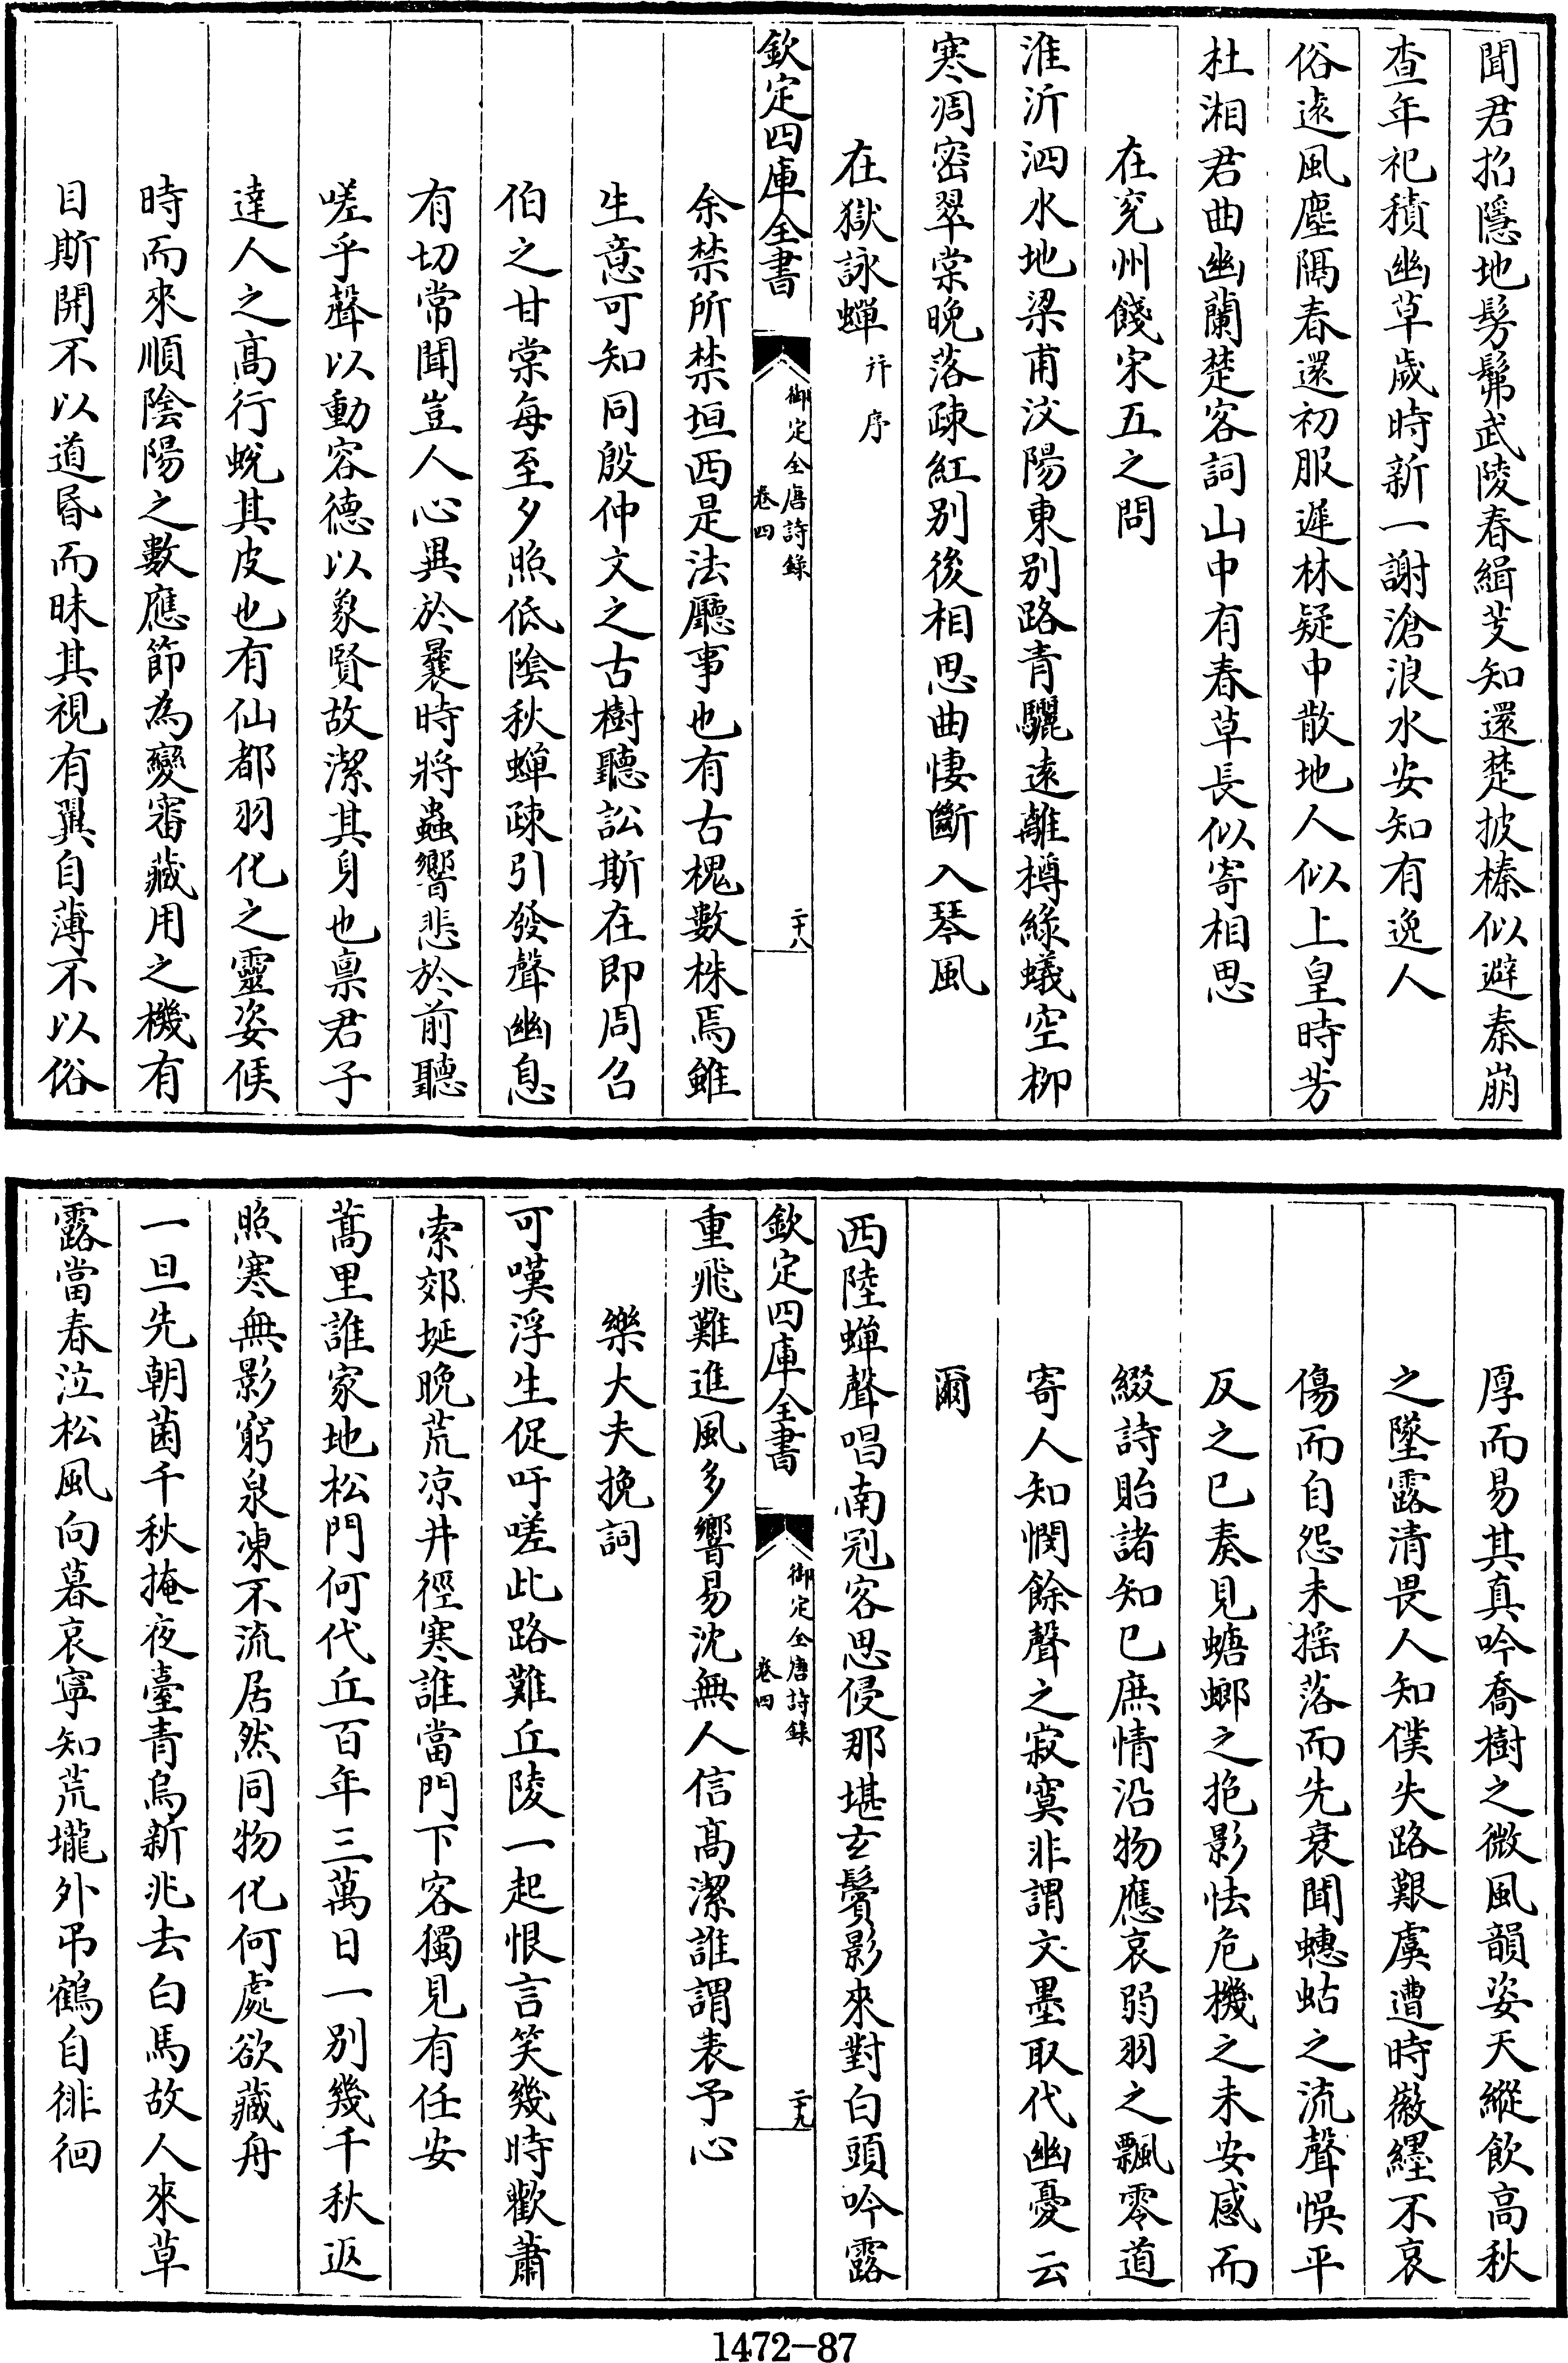 聞君招隱地髣髴武陵春緝芰知還楚披榛似避秦崩
查年祀積幽草歲時新一謝滄浪水安知有逸人
俗遠風塵隔春還初服遲林疑中散地人似上皇時芳
杜湘君曲幽蘭楚客詞山中有春草長似寄相思
在兖州餞宋五之問
淮沂泗水地梁甫汶陽東别路青驪遠離樽綠蟻空柳
寒凋密翠棠晚落疎紅别後相思曲悽斷入琴風
在獄詠蟬并序
欽定四庫全書
御定全唐詩錄
卷四
二十八
余禁所禁垣西是法廳事也有古槐數株焉雖
生意可知同殷仲文之古樹聽訟斯在即周召
伯之甘棠每至夕照低陰秋蟬疎引發聲幽息
有切常聞豈人心異於曩時將蟲響悲於前聽
嗟乎聲以動容德以象賢故潔其身也禀君子
達人之高行蛻其皮也有仙都羽化之靈姿候
時而來順陰陽之數應節為變審藏用之機有
目斯開不以道昏而昧其視有翼自薄不以俗
厚而易其真吟喬樹之微風韻姿天縱飲高秋
之墜露清畏人知僕失路艱虞遭時徽纆不哀
傷而自怨未摇落而先衰聞蟪蛄之流聲悞平
反之已奏見螗螂之抱影怯危機之未安感而
綴詩貽諸知已庶情沿物應哀弱羽之飄零道
寄人知憫餘聲之寂寞非謂文墨取代幽憂云
爾
西陸蟬聲唱南冠客思侵那堪玄鬢影來對白頭吟露
欽定四庫全書
御定全唐詩錄
卷四
二十九
重飛難進風多響易沈無人信高潔誰謂表予心
樂大夫挽詞
可嘆浮生促吁嗟此路難丘陵一起恨言笑幾時歡蕭
索郊埏晚荒凉井徑寒誰當門下客獨見有任安
蒿里誰家地松門何代丘百年三萬日一别幾千秋返
照寒無影窮泉凍不流居然同物化何處欲藏舟
一旦先朝菌千秋掩夜臺青烏新兆去白馬故人來草
露當春泣松風向暮哀寧知荒壠外弔鶴自徘徊
1472-87